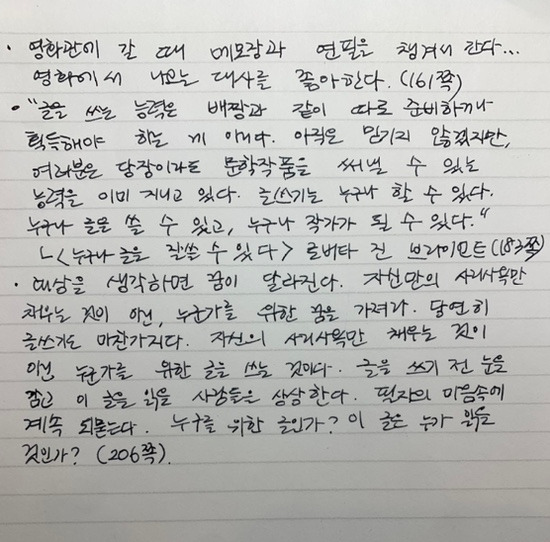 · 영화관에 갈 때 메모장과 연필을 챙겨서 간다...
영화에서 나오는 대사를 좋아한다. (161쪽)
· "글을 쓰는 능력은 배짱과 같이 따로 준비하거나
획득해야 하는 게 아니다. 아직은 믿기지 않겠지만,
여러분은 당장이라도 문학작품을 써낼 수 있는
능력을 이미 지니고 있다. 글쓰기는 누구나 할 수 있다.
누구나 글을 쓸 수 있고, 누구나 작가가 될 수 있다."
ㄴ<누구나 글을 잘쓸 수 있다> 로버타 진 브라이언트(183쪽)
· 대상을 생각하면 꿈이 달라진다. 자신만의 사리사욕만
채우는 것이 아닌, 누군가를 위한 꿈을 가져라. 당연히
글쓰기도 마찬가지다. 자신의 사리사욕만 채우는 것이
아닌 누군가를 위한 글을 쓰는 것이다. 글을 쓰기 전 눈을
감고 이 글을 읽을 사람들을 상상한다. 펜자의 마음속에
계속 되묻는다. 누구를 위한 글인가? 이 글은 누가 읽을
것인가? (206쪽).